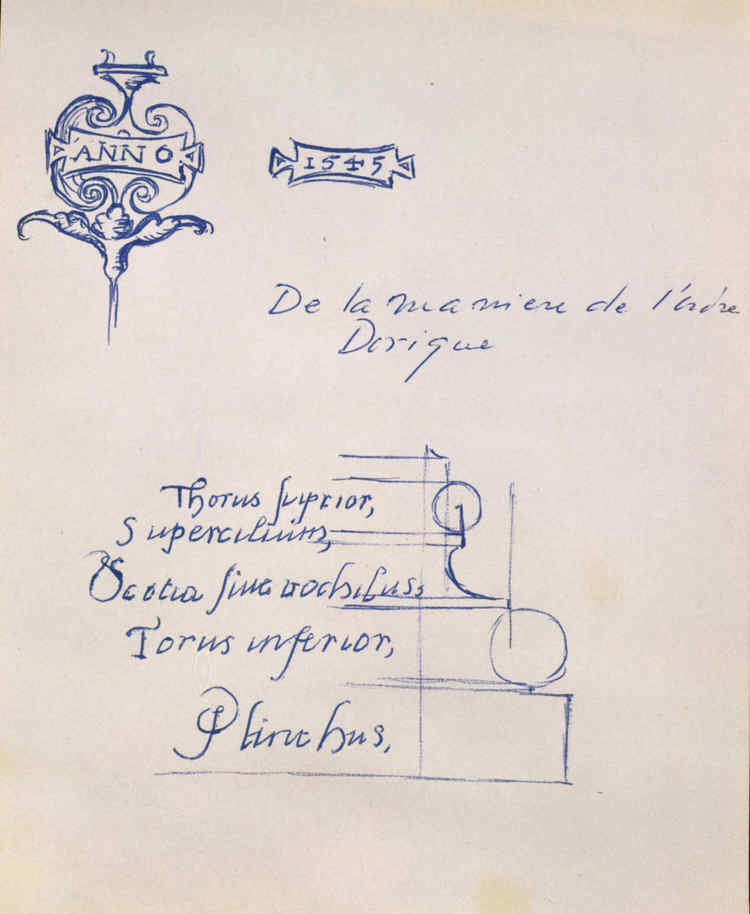 ANNO
1545
De la maniere de l'ordre
Dorique
Thorus suprior,
Supercilium,
Scotia sive trochilus,
Torus inferior,
Plinthus,